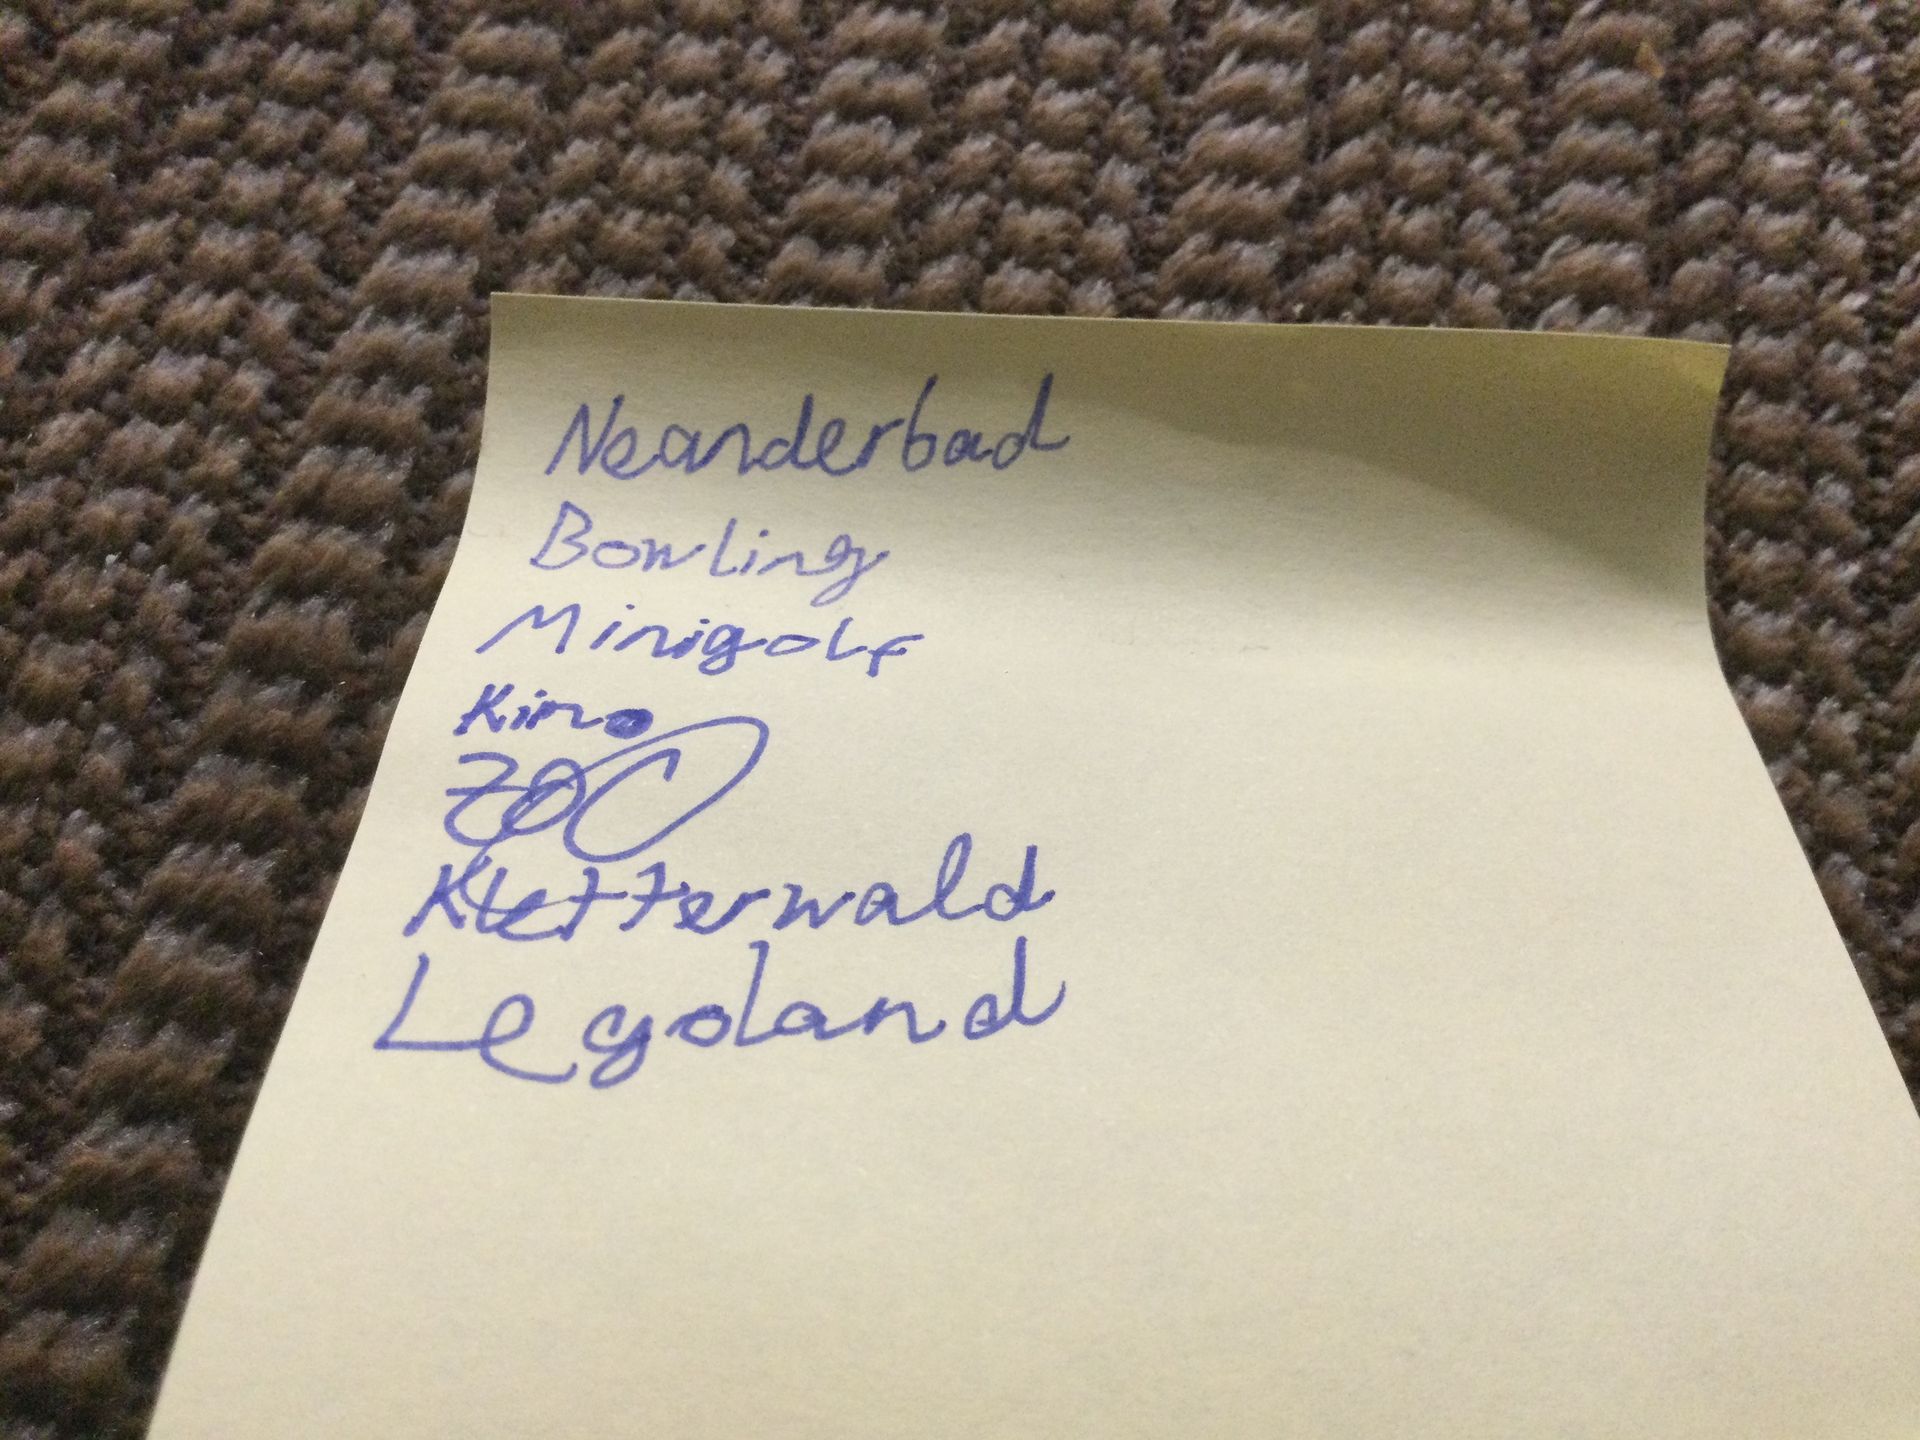 Neanderbad
Bowling
Minigolf
Kino
Zoo
Kletterwald
Legoland